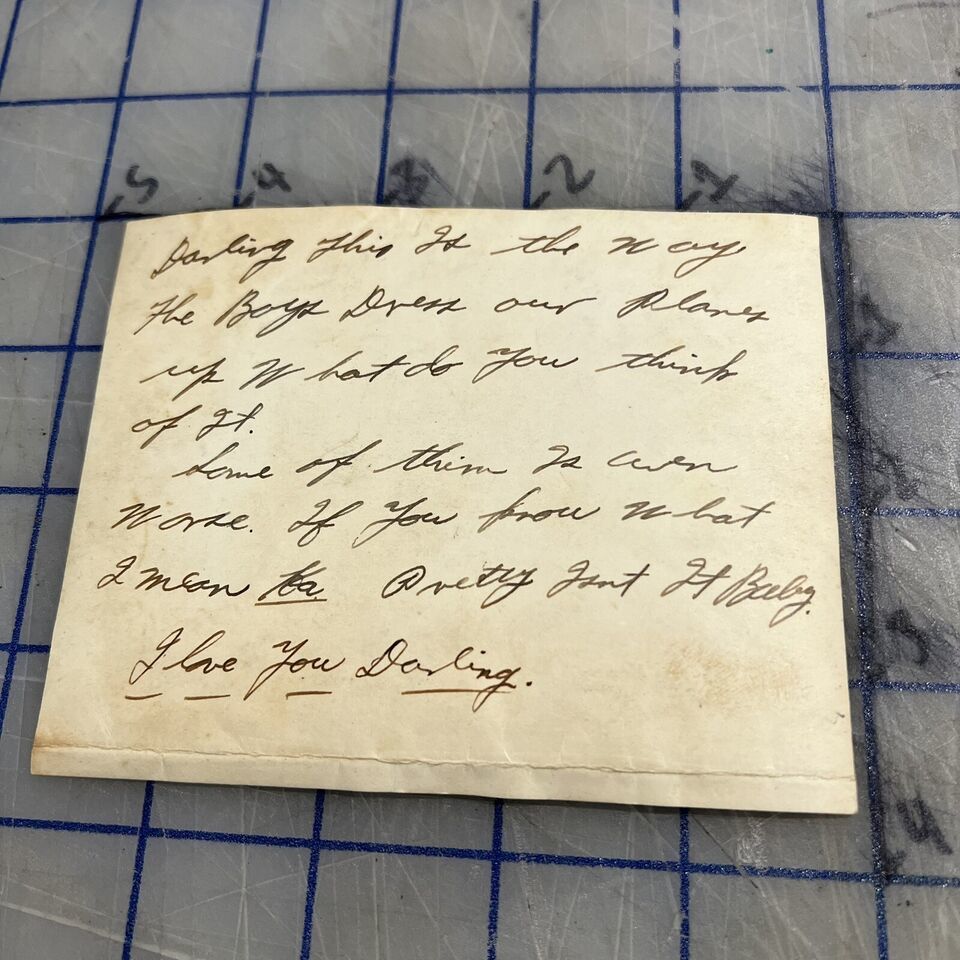 5 4 3 2 1
Darling this Is the Way
The Boys Dress our Planes
up What do You think
of It.
Some of them Is even
Worse. If You know What
I mean Ha Pretty Isnt It Baby.
I love You Darling.
1
2
3
4